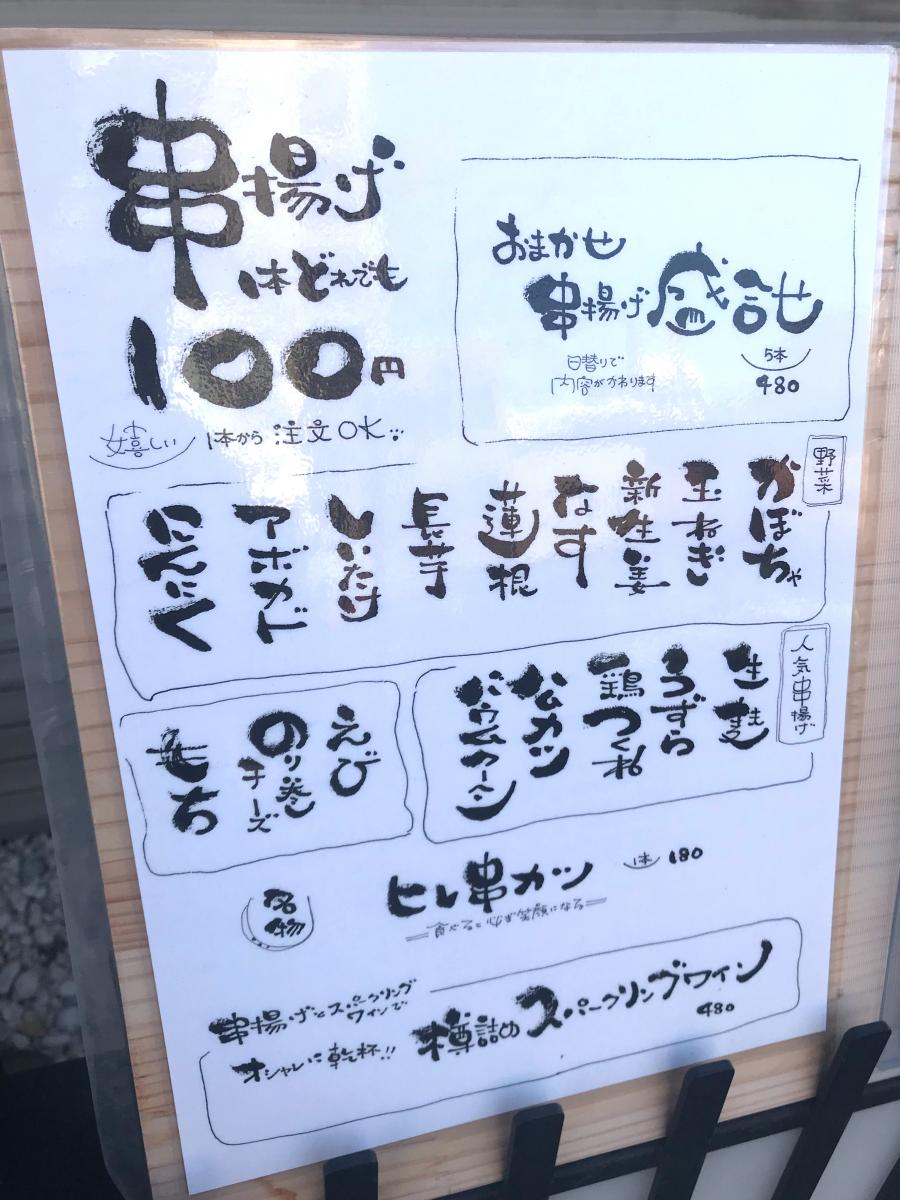 串揚げ
1本どれでも
100円
嬉しい 1本から注文OK
おまかせ
串揚げ盛合せ
日替りで
内容がかわります
5本
480
野菜
かぼちゃ
玉ねぎ
新生姜
なす
蓮根
長芋
しいたけ
アボカド
にんにく
人気串揚げ
生麩
うずら
鶏つくね
ハムカツ
バウムクーヘン
えび
のり巻チーズ
もち
名物
ヒレ串カツ 1本 180
食べると必ず笑顔になる
串揚げとスパークリング
ワインで
オシャレに乾杯!!
樽詰めスパークリングワイン
480